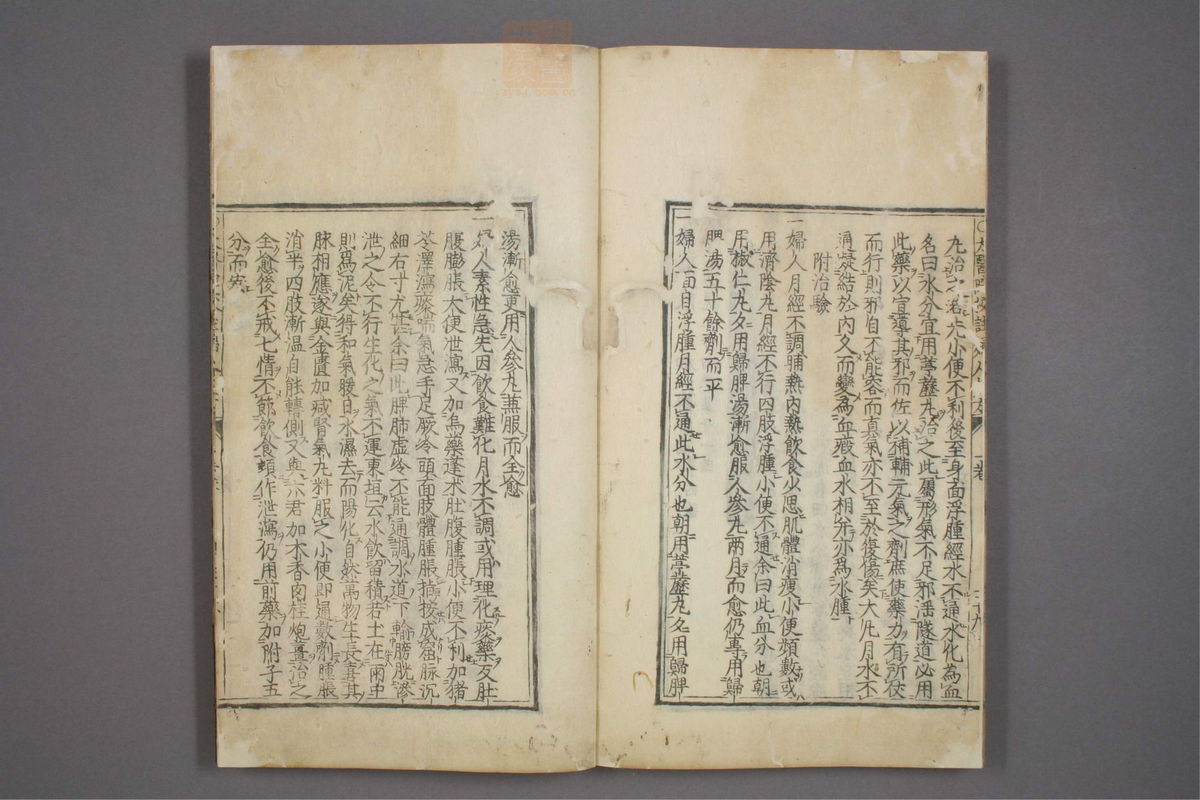 丸治之若先小便不利後至身面浮腫經水不通水化為血
名曰水分宜用葶藶丸治之此屬形氣不足邪滛隧道必用
此藥以宣導其邪而佐以補輔元氣之劑庶使藥力有所仗
而行則邪自不能容而真氣亦不至於復傷矣大凡月水不
通凝結於內久而變為血瘕血水相并亦為水腫
附治驗
一婦人月經不調晡熱內熱飲食少思肌體消瘦小便頻數或
用濟陰丸月經不行四肢浮腫小便不通余曰此血分也朝
用椒仁丸夕用歸脾湯漸愈服人參丸兩月而愈仍專用歸
脾湯五十餘劑而平
一婦人面目浮腫月經不通此水分也朝用葶藶丸夕用歸脾
湯漸愈更用人參丸兼服而全愈
一婦人素性急先因飲食難化月水不調或用理化痰藥反肚
腹膨脹大便泄瀉又加烏藥蓬朮肚腹腫脹小便不利加猪
苓澤瀉痰喘氣急手足厥冷頭面肢體腫脹指按成窟脉沉
細右寸尤甚余曰此脾肺虛冷不能通調水道下輸膀胱滲
泄之令不行生化之氣不運東垣云水飲留積若土在雨中
則爲泥矣得和氣暖日水濕去而陽化自然萬物生長喜其
脉相應遂與金匱加减腎氣丸料服之小便即通數劑腫脹
消半四肢漸温自能轉側又與六君加木香肉桂炮薑治之
全愈後不戒七情不節飲食頓作泄瀉仍用前藥加附子五
分而安